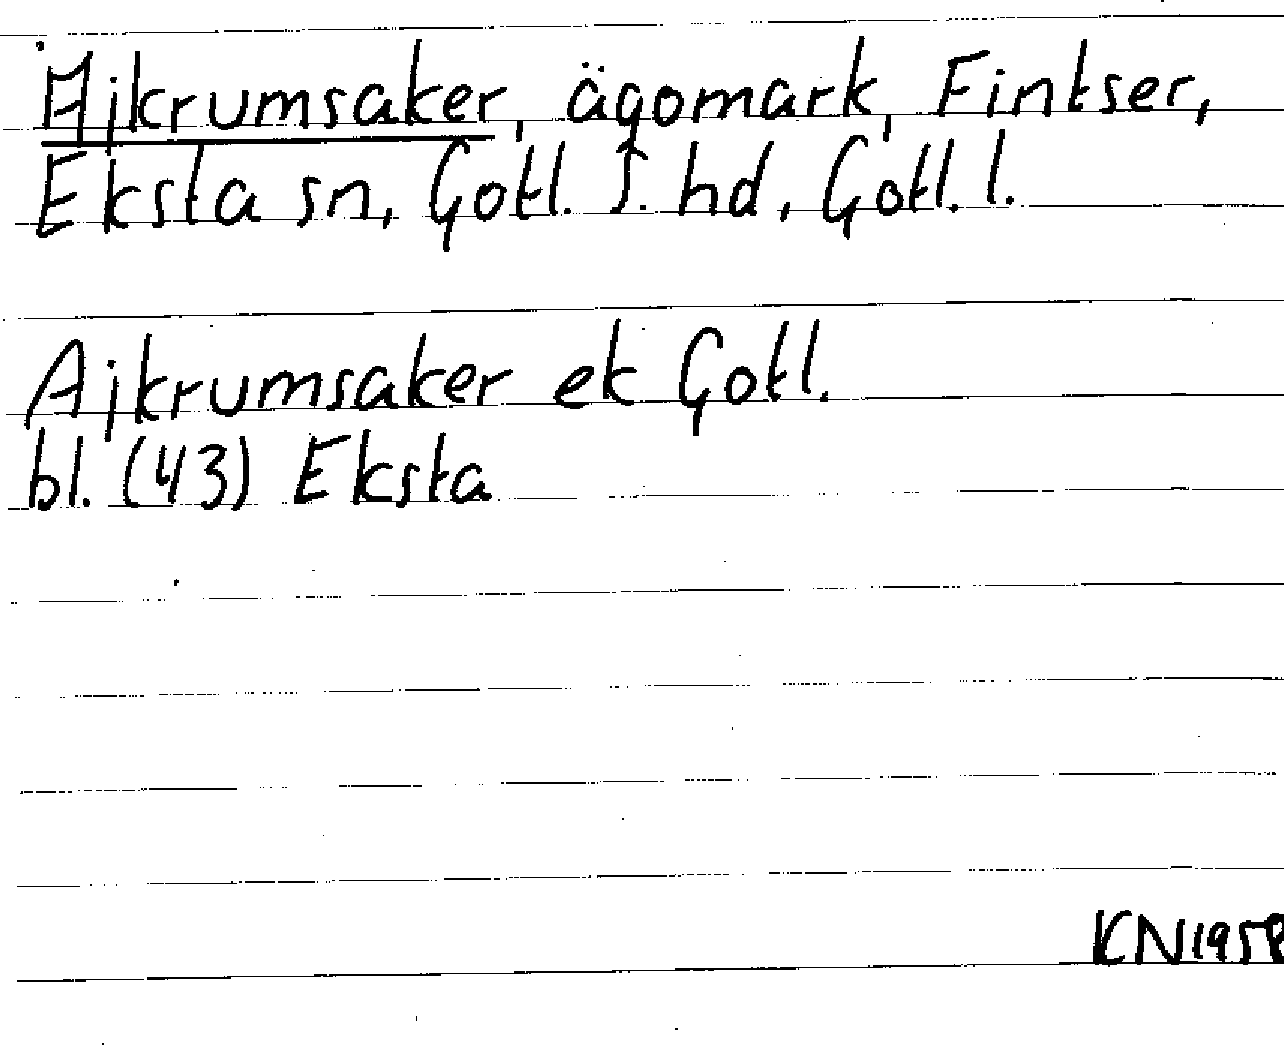 Ajkrumsaker, ägomark, Fintser,
Eksta sn, Gotl. S. hd, Gotl. l.
Ajkrumsaker ek Gotl.
bl. (43) Eksta
KN1958